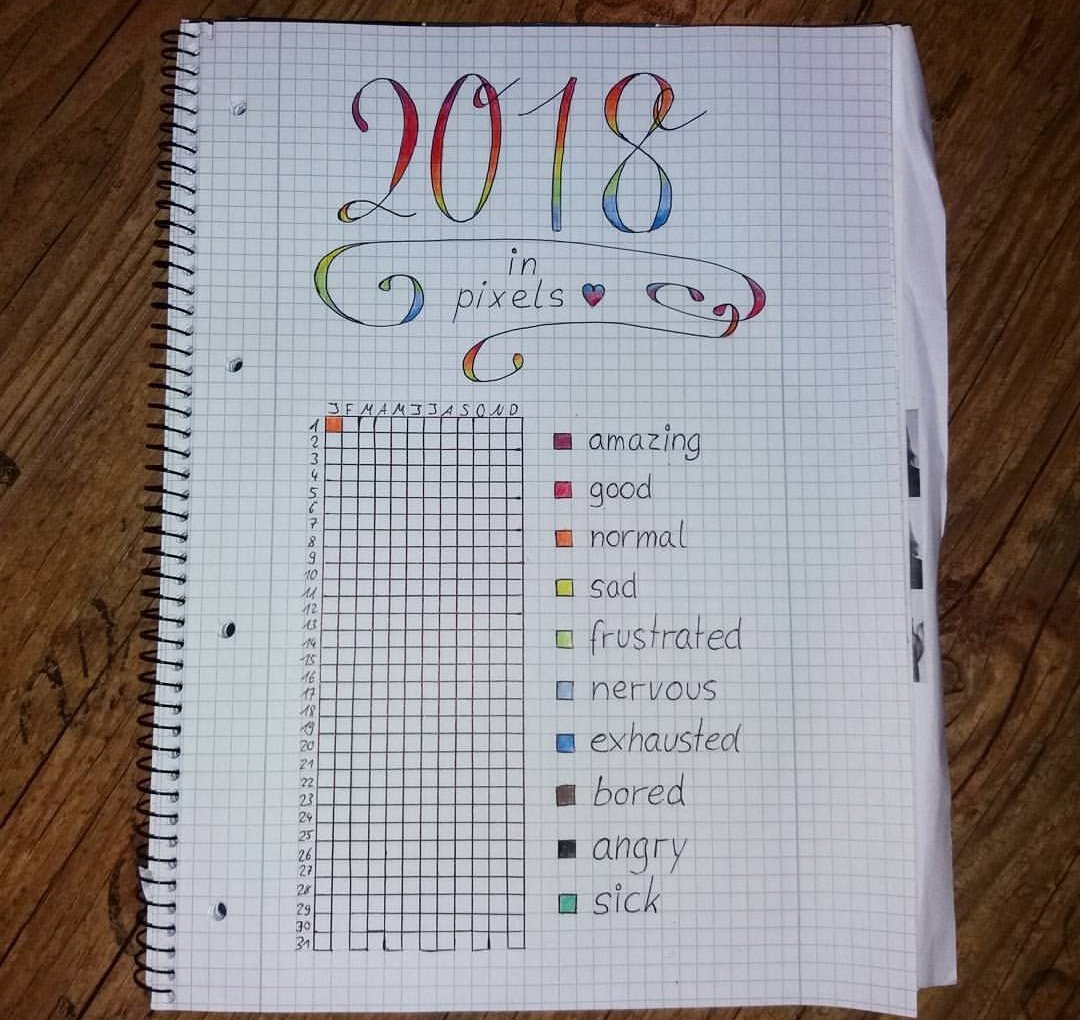 2018
in
pixels
J F M A M J J A S O N D
1
2
3
4
5
6
7
8
9
10
11
12
13
14
15
16
17
18
19
20
21
22
23
24
25
26
27
28
29
30
31
amazing
good
normal
sad
frustrated
nervous
exhausted
bored
angry
sick